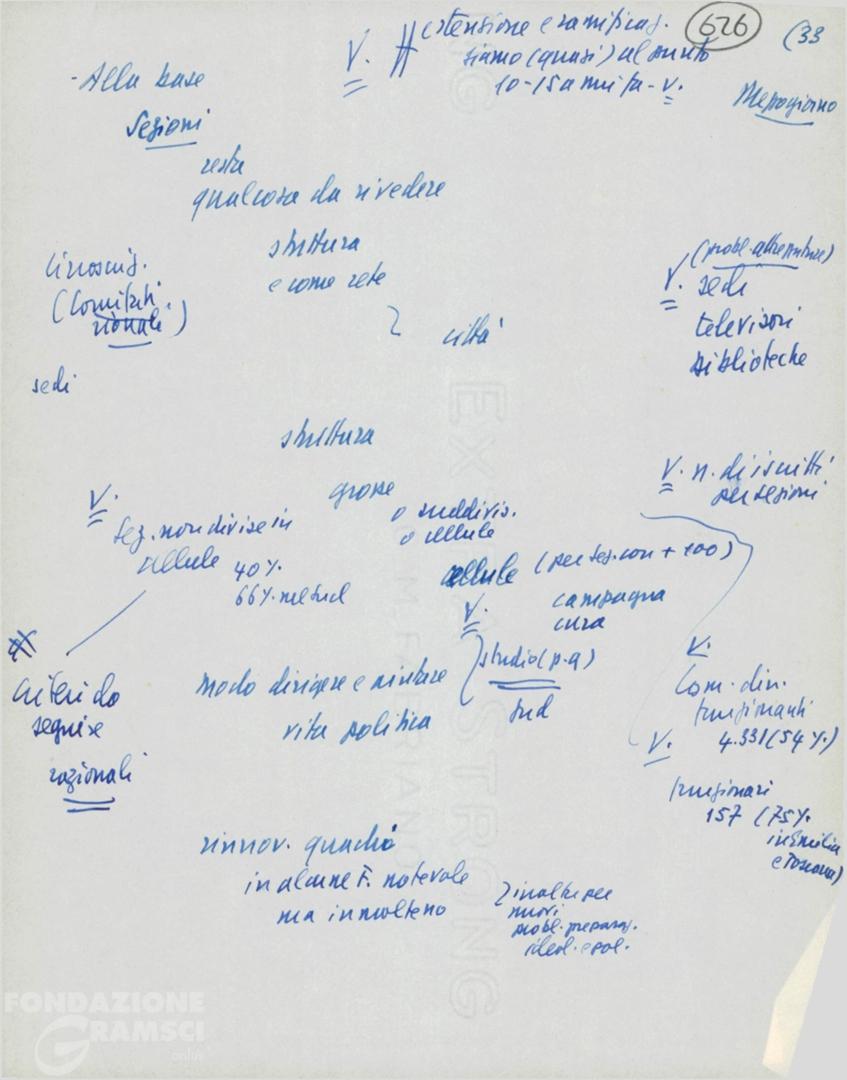 626
(33
V. # estensione e ramificaz.
siamo (quasi) al punto
10-15 anni fa - V.
Mezzogiorno
- Alla base
Sezioni
resta
qualcosa da rivedere
struttura
e come rete
Circoscriz.
(Comitati
rionali)
città
sedi
V. (probl. attrezzature)
sedi
televisori
biblioteche
struttura
grosse
o suddivis.
o cellule
V. n. di iscritti
per sezioni
V.
Sez. non divise in
cellule 40%
66% nel sud
cellule (per sez. con + 100)
V. campagna
cura
studio (p.q)
Sud
#
criteri da
seguire
razionali
modo dirigere e
vita politica
V.
Com. dir.
funzionanti
4.331 (54%)
V.
funzionari
157 (75%
in Emilia
e Toscana)
rinnov. quadri
in alcune F. notevole
ma in molte no
inoltre per
nuovi
probl. preparaz.
ideol. e pol.
EXTRA STRONG
FABRIANO
FONDAZIONE
GRAMSCI
onlus